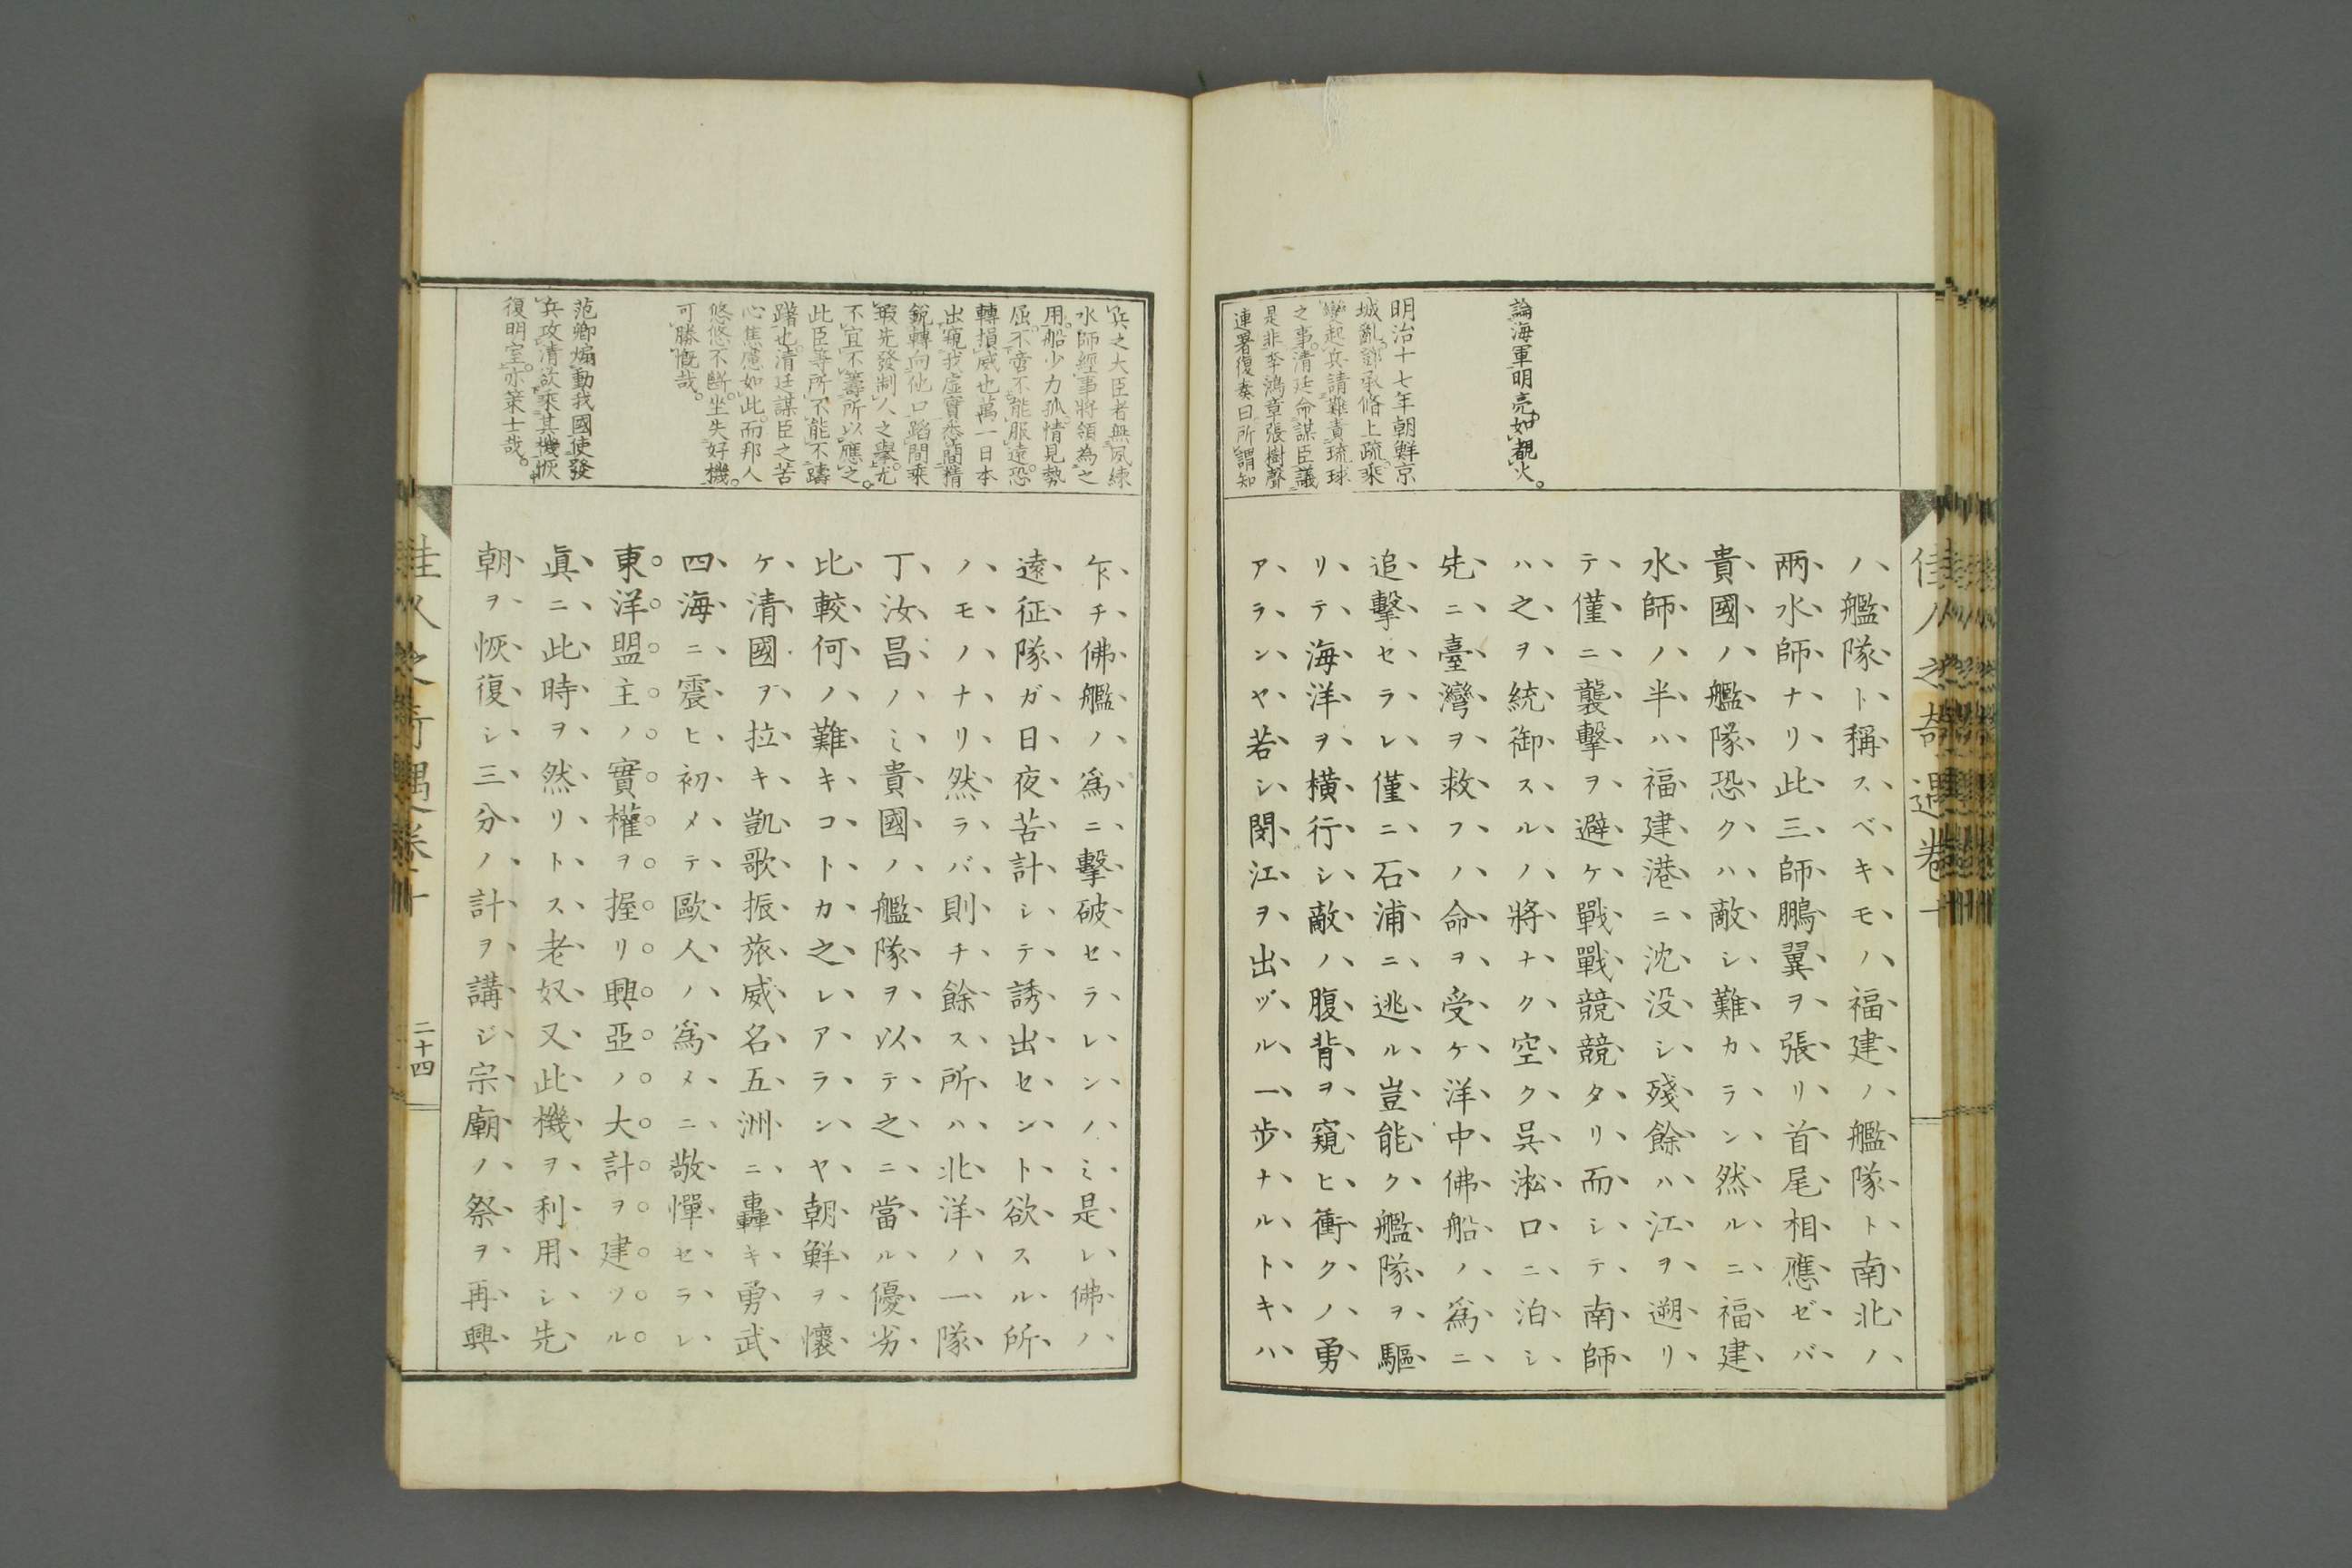 佳人之奇遇卷十
論海軍明亮如觀火。
明治十七年朝鮮京
城亂鄧承脩上疏乘
變起兵請難責琉球
之事清廷命謀臣議
是非李鴻章張樹聲
連署復奏曰所謂知
ノ艦隊ト稱スベキモノハ福建ノ艦隊ト南北ノ
兩水師ナリ此三師鵬翼ヲ張リ首尾相應ゼバ
貴國ノ艦隊恐クハ敵シ難カラン然ルニ福建
水師ノ半ハ福建港ニ沈没シ殘餘ハ江ヲ遡リ
テ僅ニ襲擊ヲ避ケ戰戰競競タリ而シテ南師
ハ之ヲ統御スルノ將ナク空ク吳淞口ニ泊シ
先ニ臺灣ヲ救フノ命ヲ受ケ洋中佛船ノ爲ニ
追擊セラレ僅ニ石浦ニ逃ル豈能ク艦隊ヲ驅
リテ海洋ヲ橫行シ敵ノ腹背ヲ窺ヒ衝クノ勇
アランヤ若シ閔江ヲ出ヅル一步ナルトキハ
兵之大臣者無夙練
水師經事將領為之
用。船少力孤情見勢
屈。不啻不能服遠恐
轉損威也萬一日本
出窺我虛實悉簡精
銳轉向他口蹈間乘
瑕先發制人之擧。尤
不宜不籌所以應之。
此臣等所不能不躊
躇也。清廷謀臣之苦
心焦慮如此。而邦人
悠悠不斷。坐失好機。
可勝慨哉。
范卿煽動我國使發
兵攻清欲乘其機恢
復明室。亦策士哉。
乍チ佛艦ノ爲ニ擊破セラレンノミ是レ佛ノ
遠征隊ガ日夜苦計シテ誘出セント欲スル所
ノモノナリ然ラバ則チ餘ス所ハ北洋ノ一隊
丁汝昌ノミ貴國ノ艦隊ヲ以テ之ニ當ル優劣
比較何ノ難キコトカ之レアランヤ朝鮮ヲ懷
ケ清國ヲ拉キ凱歌振旅威名五洲ニ轟キ勇武
四海ニ震ヒ初メテ歐人ノ爲メニ敬憚セラレ
東洋盟主ノ實權ヲ握リ興亞ノ大計ヲ建ツル
眞ニ此時ヲ然リトス老奴又此機ヲ利用シ先
朝ヲ恢復シ三分ノ計ヲ講ジ宗廟ノ祭ヲ再興
佳人之奇遇卷十
二十四